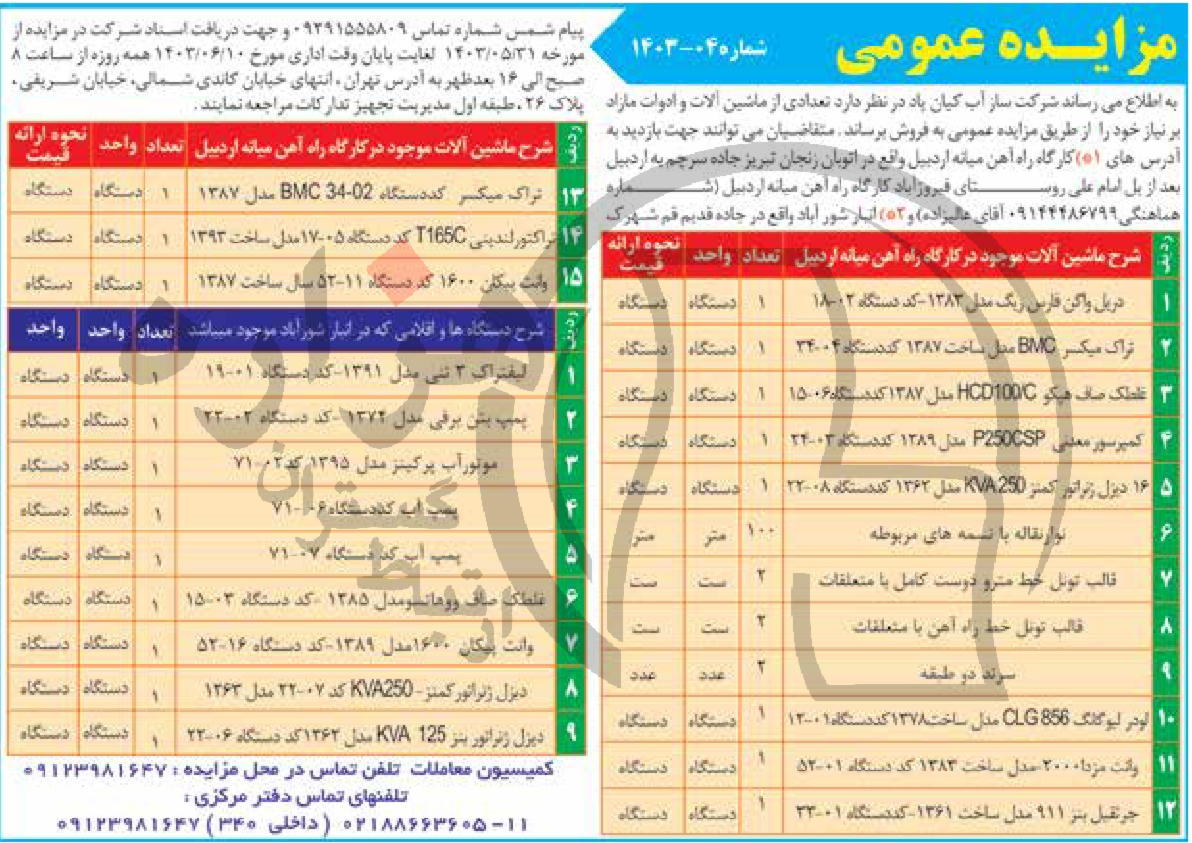 مزایـده عمومی
شماره ۰۴-۱۴۰۳
به اطلاع می رساند شرکت ساز آب کیان پاد در نظر دارد تعدادی از ماشین آلات و ادوات مازاد
بر نیاز خود را از طریق مزایده عمومی به فروش برساند. متقاضیان می توانند جهت بازدید به
آدرس های ۱*)کارگاه راه آهن میانه اردبیل واقع در اتوبان زنجان تبریز جاده سرچم به اردبیل
بعد از پل امام علی روستای فیروزآباد کارگاه راه آهن میانه اردبیل (شماره
هماهنگی ۰۹۱۴۴۴۸۶۷۹۹ آقای عالیزاده) و ۲*) انبار شور آباد واقع در جاده قدیم قم شهرک
ردیف شرح ماشین آلات موجود در کارگاه راه آهن میانه اردبیل تعداد واحد نحوه ارائه قیمت
۱ دریل واگن فارس ریگ مدل ۱۳۸۳-کد دستگاه ۰۲-۱۸ ۱ دستگاه دستگاه
۲ تراک میکسر BMC مدل ساخت ۱۳۸۷ کددستگاه ۰۴-۳۴ ۱ دستگاه دستگاه
۳ غلطک صاف هپکو HCD100/C مدل ۱۳۸۷ کددستگاه ۰۶-۱۵ ۱ دستگاه دستگاه
۴ کمپرسور معدنی P250CSP مدل ۱۳۸۹ کددستگاه ۰۳-۲۴ ۱ دستگاه دستگاه
۵ ۱۶ دیزل ژنراتور کمنز KVA250 مدل ۱۳۶۲ کددستگاه ۰۸-۲۲ ۱ دستگاه دستگاه
۶ نوارنقاله با تسمه های مربوطه ۱۰۰ متر متر
۷ قالب تونل خط مترو دوست کامل با متعلقات ۲ ست ست
۸ قالب تونل خط راه آهن با متعلقات ۲ ست ست
۹ سرند دو طبقه ۲ عدد عدد
۱۰ لودر لیوگانگ CLG 856 مدل ساخت ۱۳۷۸ کددستگاه ۰۱-۱۲ ۱ دستگاه دستگاه
۱۱ وانت مزدا ۲۰۰۰-مدل ساخت ۱۳۸۳ کد دستگاه ۰۱-۵۲ ۱ دستگاه دستگاه
۱۲ جرثقیل بنز ۹۱۱ مدل ساخت ۱۳۶۱-کددستگاه ۰۱-۳۳ ۱ دستگاه دستگاه
پیام شمس شماره تماس ۰۹۳۹۱۵۵۵۸۰۹ و جهت دریافت اسناد شرکت در مزایده از
مورخه ۱۴۰۳/۰۵/۳۱ لغایت پایان وقت اداری مورخ ۱۴۰۳/۰۶/۱۰ همه روزه از ساعت ۸
صبح الی ۱۶ بعدظهر به آدرس تهران، انتهای خیابان گاندی شمالی، خیابان شریفی،
پلاک ۲۶، طبقه اول مدیریت تجهیز تدارکات مراجعه نمایند.
ردیف شرح ماشین آلات موجود در کارگاه راه آهن میانه اردبیل تعداد واحد نحوه ارائه قیمت
۱۳ تراک میکسر کددستگاه BMC 34-02 مدل ۱۳۸۷ ۱ دستگاه دستگاه
۱۴ تراکتور لندینی T165C کد دستگاه ۰۵-۱۷ مدل ساخت ۱۳۹۳ ۱ دستگاه دستگاه
۱۵ وانت پیکان ۱۶۰۰ کد دستگاه ۱۱-۵۲ سال ساخت ۱۳۸۷ ۱ دستگاه دستگاه
ردیف شرح دستگاه ها و اقلامی که در انبار شورآباد موجود میباشد تعداد واحد واحد
۱ لیفتراک ۳ تنی مدل ۱۳۹۱-کد دستگاه ۰۱-۱۹ ۱ دستگاه دستگاه
۲ پمپ بتن برقی مدل ۱۳۷۴ -کد دستگاه ۰۲-۲۲ ۱ دستگاه دستگاه
۳ موتورآب پرکینز مدل ۱۳۹۵ کد ۰۲-۷۱ ۱ دستگاه دستگاه
۴ پمپ آب کددستگاه ۰۶-۷۱ ۱ دستگاه دستگاه
۵ پمپ آب کد دستگاه ۰۷-۷۱ ۱ دستگاه دستگاه
۶ غلطک صاف ووهانسومدل ۱۳۸۵ -کد دستگاه ۰۳-۱۵ ۱ دستگاه دستگاه
۷ وانت پیکان ۱۶۰۰مدل ۱۳۸۹-کد دستگاه ۱۶-۵۲ ۱ دستگاه دستگاه
۸ دیزل ژنراتور کمنز-KVA250 کد ۰۷-۲۲ مدل ۱۳۶۳ ۱ دستگاه دستگاه
۹ دیزل ژنراتور بنز KVA 125 مدل ۱۳۶۲ کد دستگاه ۰۶-۲۲ ۱ دستگاه دستگاه
کمیسیون معاملات تلفن تماس در محل مزایده : ۰۹۱۲۳۹۸۱۶۴۷
تلفنهای تماس دفتر مرکزی :
۰۲۱۸۸۶۶۳۶۰۵-۱۱ (داخلی ۳۴۰) ۰۹۱۲۳۹۸۱۶۴۷